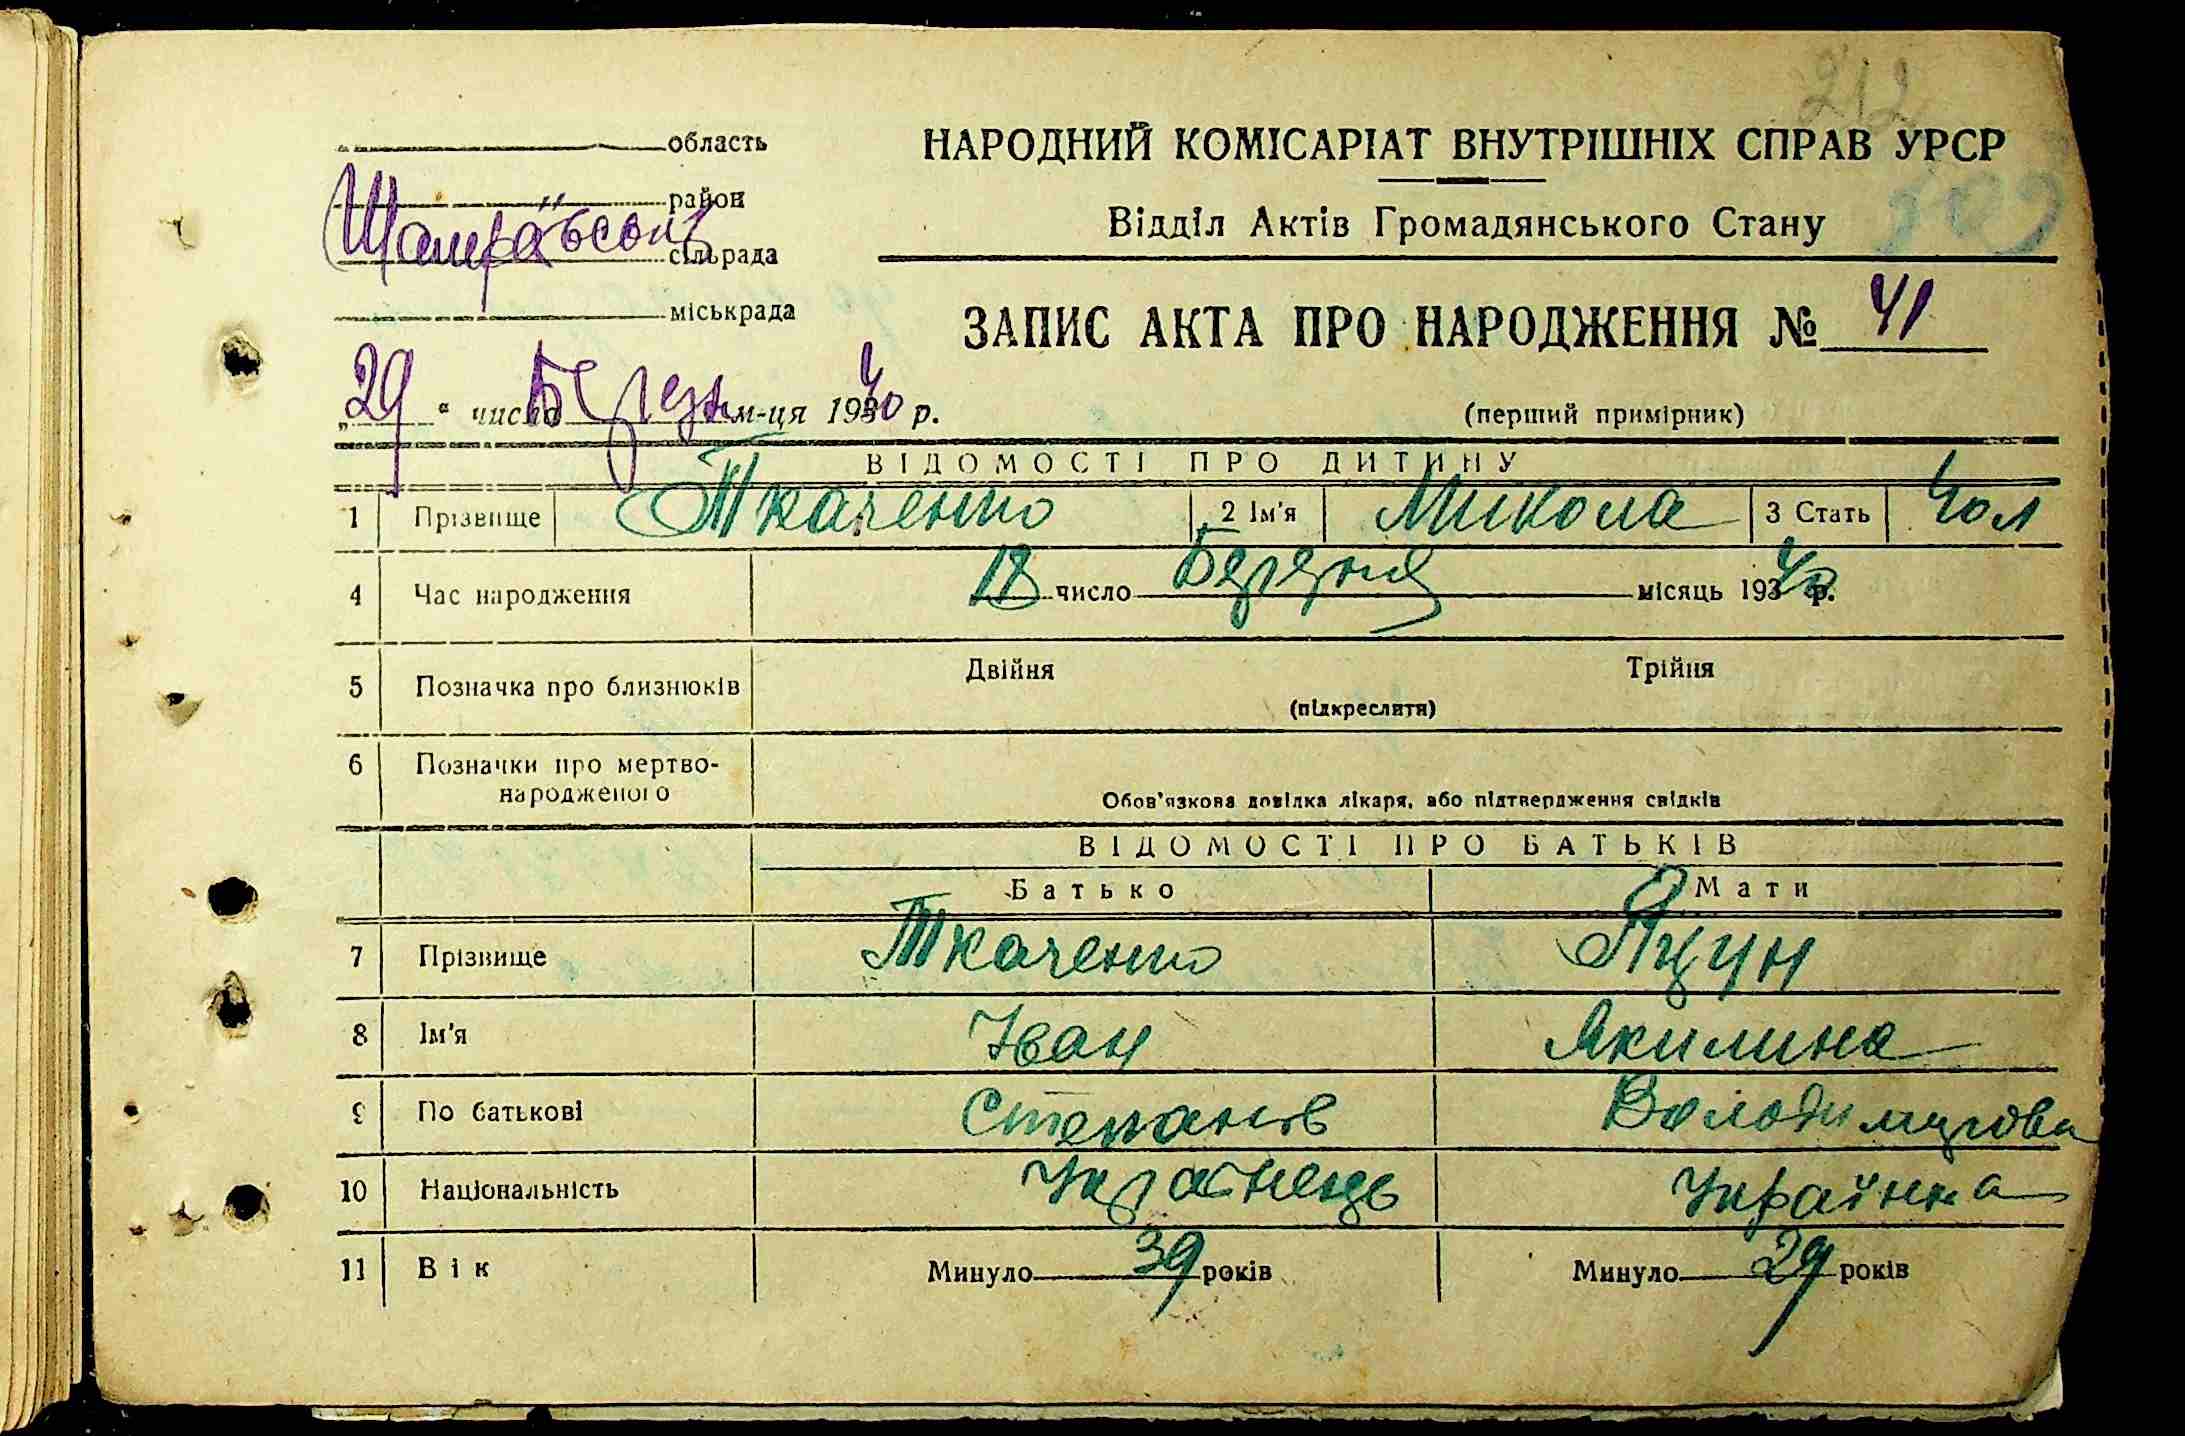 212
область
НАРОДНИЙ КОМІСАРІАТ ВНУТРІШНІХ СПРАВ УРСР
район
Відділ Актів Громадянського Стану
сільрада
міськрада
ЗАПИС АКТА ПРО НАРОДЖЕННЯ № 41
„29 “ число Березня м-ця 1940 р.
(перший примірник)
ВІДОМОСТІ ПРО ДИТИНУ
1 Прізвище Ткаченко 2 Ім'я Микола 3 Стать Чол
4 Час народження 18 число Березня місяць 1940 р.
5 Позначка про близнюків Двійня Трійня
(підкреслити)
6 Позначки про мертво-
народженого
Обов'язкова довідка лікаря, або підтвердження свідків
ВІДОМОСТІ ПРО БАТЬКІВ
Батько Мати
7 Прізвище Ткаченко Яцун
8 Ім'я Іван Акилина
9 По батькові Степанов Володимирова
10 Національність Українець Українка
11 Вік Минуло 39 років Минуло 29 років